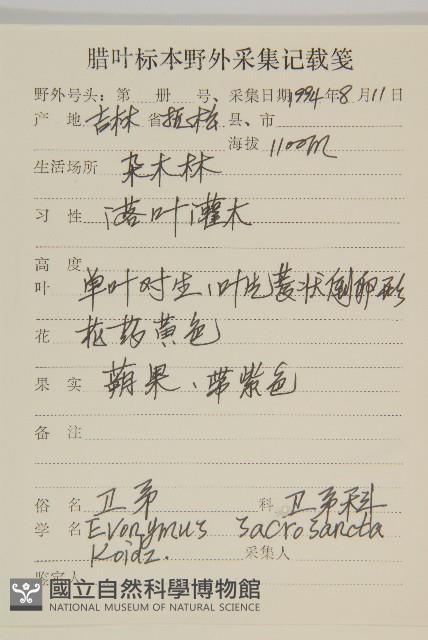 腊叶标本野外采集记载笺
野外号头: 第 册 号、采集日期1994年8月11日
产 地 吉林 省 抚松 县、市
海拔 1100m
生活场所 杂木林
习 性 落叶灌木
高 度
叶 单叶对生,叶片菱状倒卵形
花 花药黄色
果 实 蒴果、带紫色
备 注
俗 名 卫矛 科 卫矛科
学 名 Evonymus sacrosancta
Koidz. 采集人
鉴定人
國立自然科學博物館
NATIONAL MUSEUM OF NATURAL SCIENCE